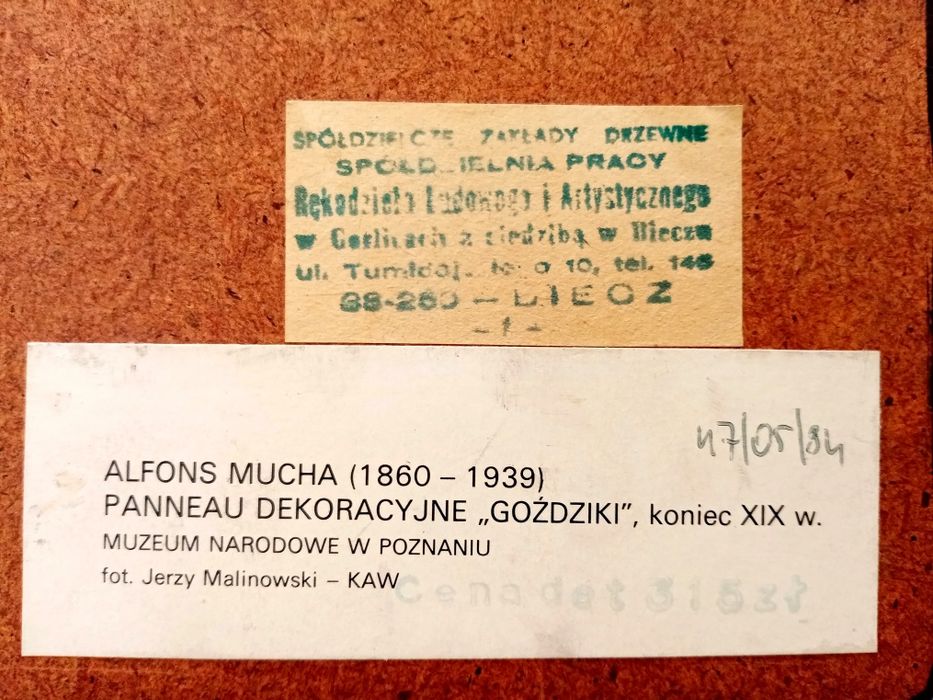 SPÓŁDZIELCZE ZAKŁADY DRZEWNE
SPÓŁDZIELNIA PRACY
Rękodzieła Ludowego i Artystycznego
w Gorlicach z siedzibą w Bieczu
ul. 10, tel. 146
38-250 – BIECZ
- 1 -
47/05/84
ALFONS MUCHA (1860 – 1939)
PANNEAU DEKORACYJNE „GOŹDZIKI”, koniec XIX w.
MUZEUM NARODOWE W POZNANIU
fot. Jerzy Malinowski – KAW
Cena det 315zł